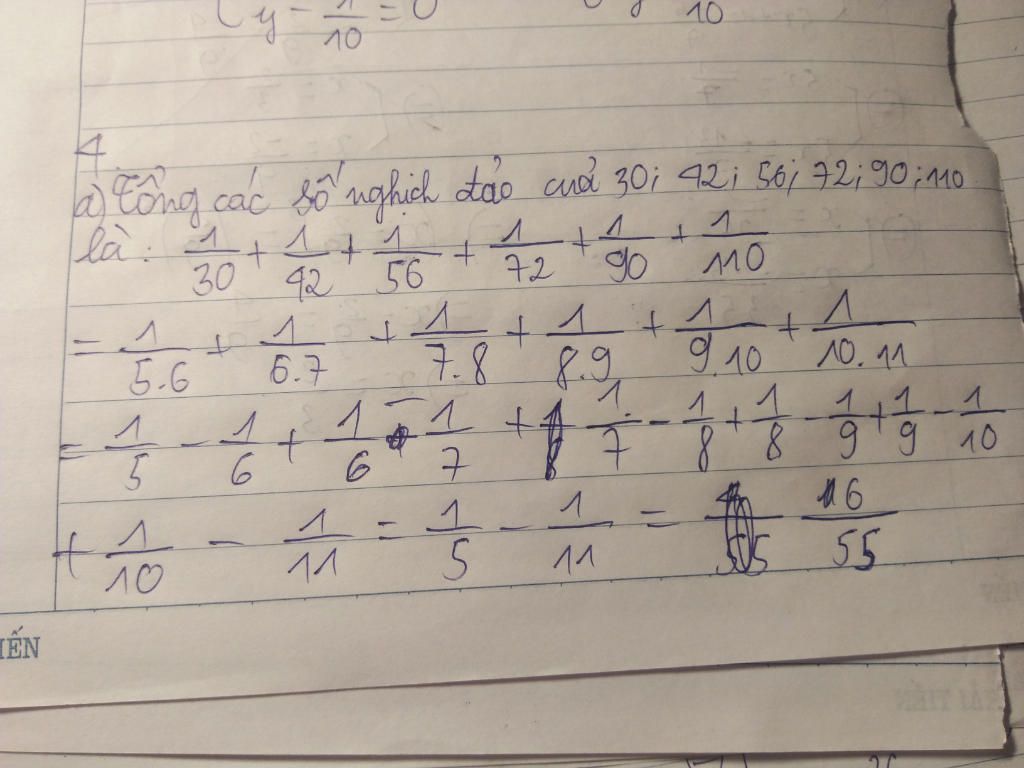 y - 1/10 = 0
10
4
a) Tổng các số nghịch đảo cuả 30; 42; 56; 72; 90; 110
là: 1/30 + 1/42 + 1/56 + 1/72 + 1/90 + 1/110
= 1/5.6 + 1/6.7 + 1/7.8 + 1/8.9 + 1/9.10 + 1/10.11
= 1/5 - 1/6 + 1/6 - 1/7 + 1/7 - 1/8 + 1/8 - 1/9 + 1/9 - 1/10
+ 1/10 - 1/11 = 1/5 - 1/11 = 6/55
IẾN